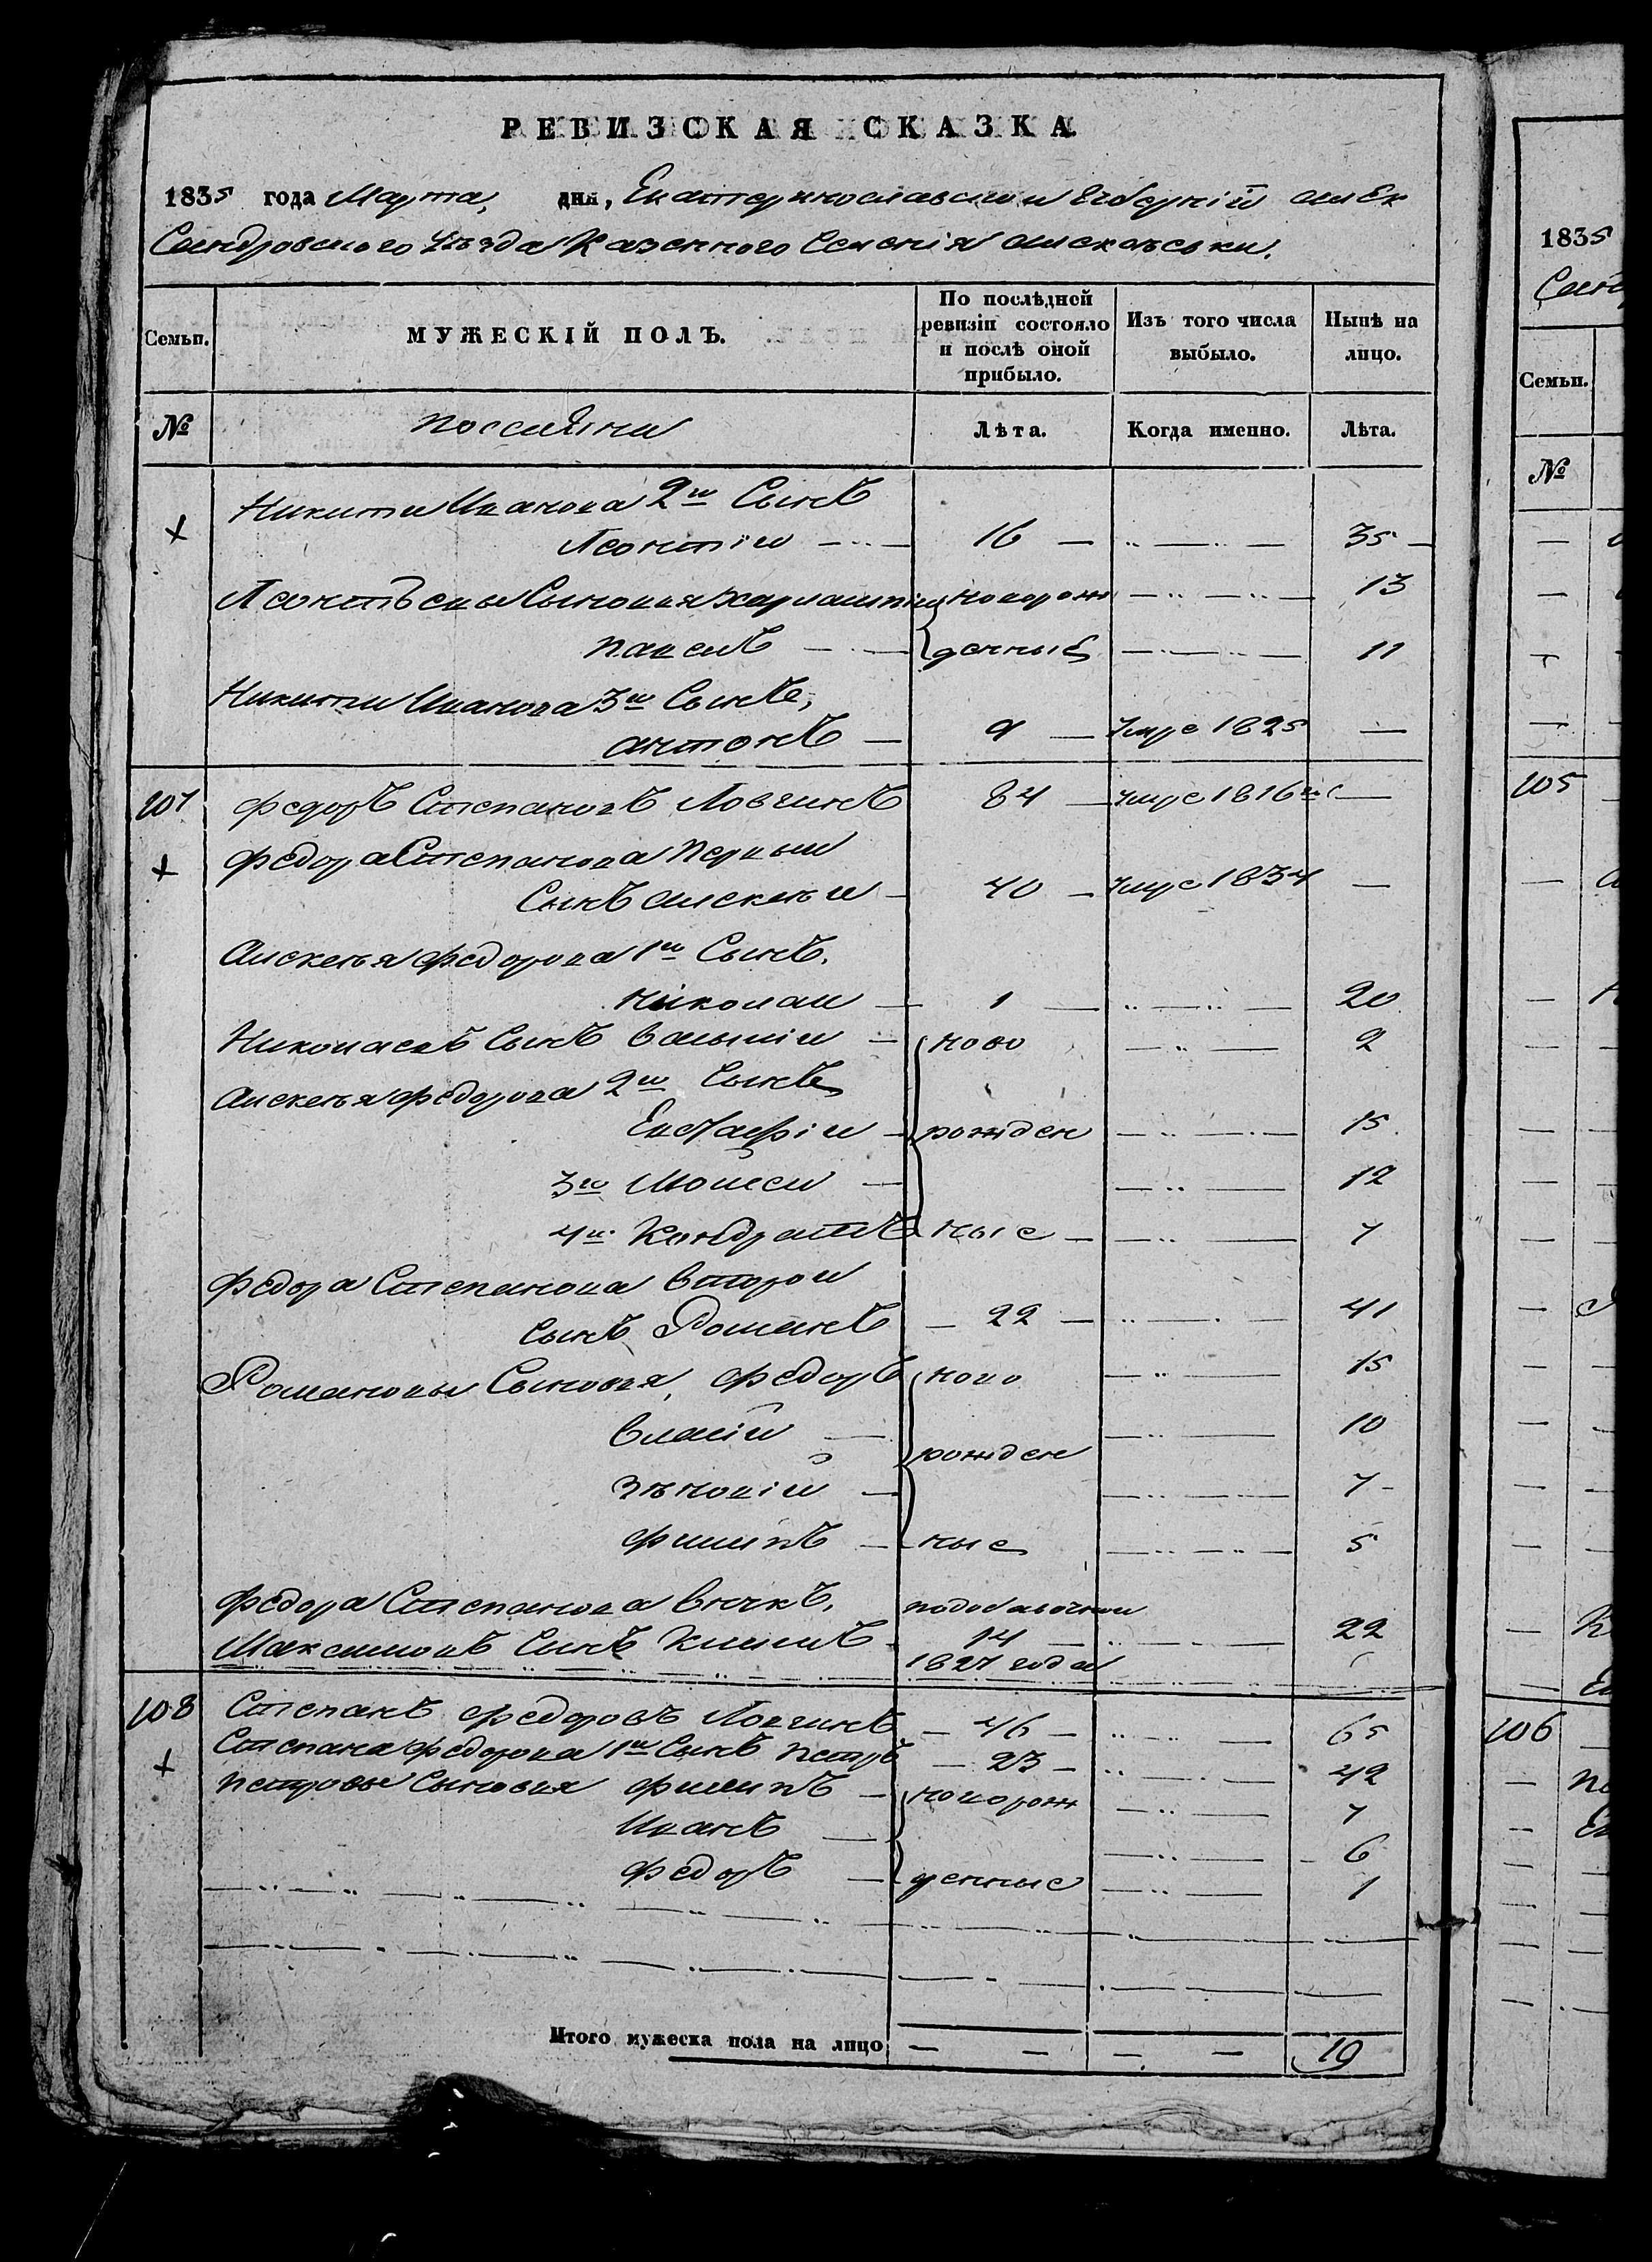 РЕВИЗСКАЯ СКАЗКА
1835 года Марта, дня, Екатеринославской Губерніи Алек
сандровского Уѣзда Казенного Селенія Алексѣевки.
Семьи. МУЖЕСКІЙ ПОЛЪ. По послѣдней ревизіи состояло и послѣ оной прибыло. Изъ того числа выбыло. Нынѣ на лицо.
№ Лѣта. Когда именно. Лѣта.
Никиты Иванова 2й Сынъ
Леонтій 16 35
Леонтьевы Сыновья Харлампій новорож 13
Павелъ денные 11
Никиты Иванова 3й Сынъ,
антонъ 9 умре 1825
107 Федоръ Степановъ Ловчинъ 84 умре 1816
Федора Степанова первый
Сынъ алексѣй 40 умре 1834
Алексѣя Федорова 1й Сынъ,
Николай 1 20
Николаевъ Сынъ Василій ново 2
Алексѣя Федорова 2й Сынъ
Евстафій рожден 15
3й Моисей 12
4й Кондратъ ные 7
Федора Степанова второй
сынъ Романъ 22 41
Романовы Сыновья, Федоръ ново 15
Власій 10
рожден
Зѣновій 7
Филипъ ные 5
Федора Степанова внукъ,
Максимовъ Сынъ Климъ 14 22
1827 года
108 Степанъ Федоровъ Ловчинъ 46 65
Степана Федорова 1й Сынъ Петръ 23 42
Петровы Сыновья Филипъ новорож 7
Иванъ 6
Федоръ денные 1
Итого мужеска пола на лицо 19
1835
Семьи.
№
105
106